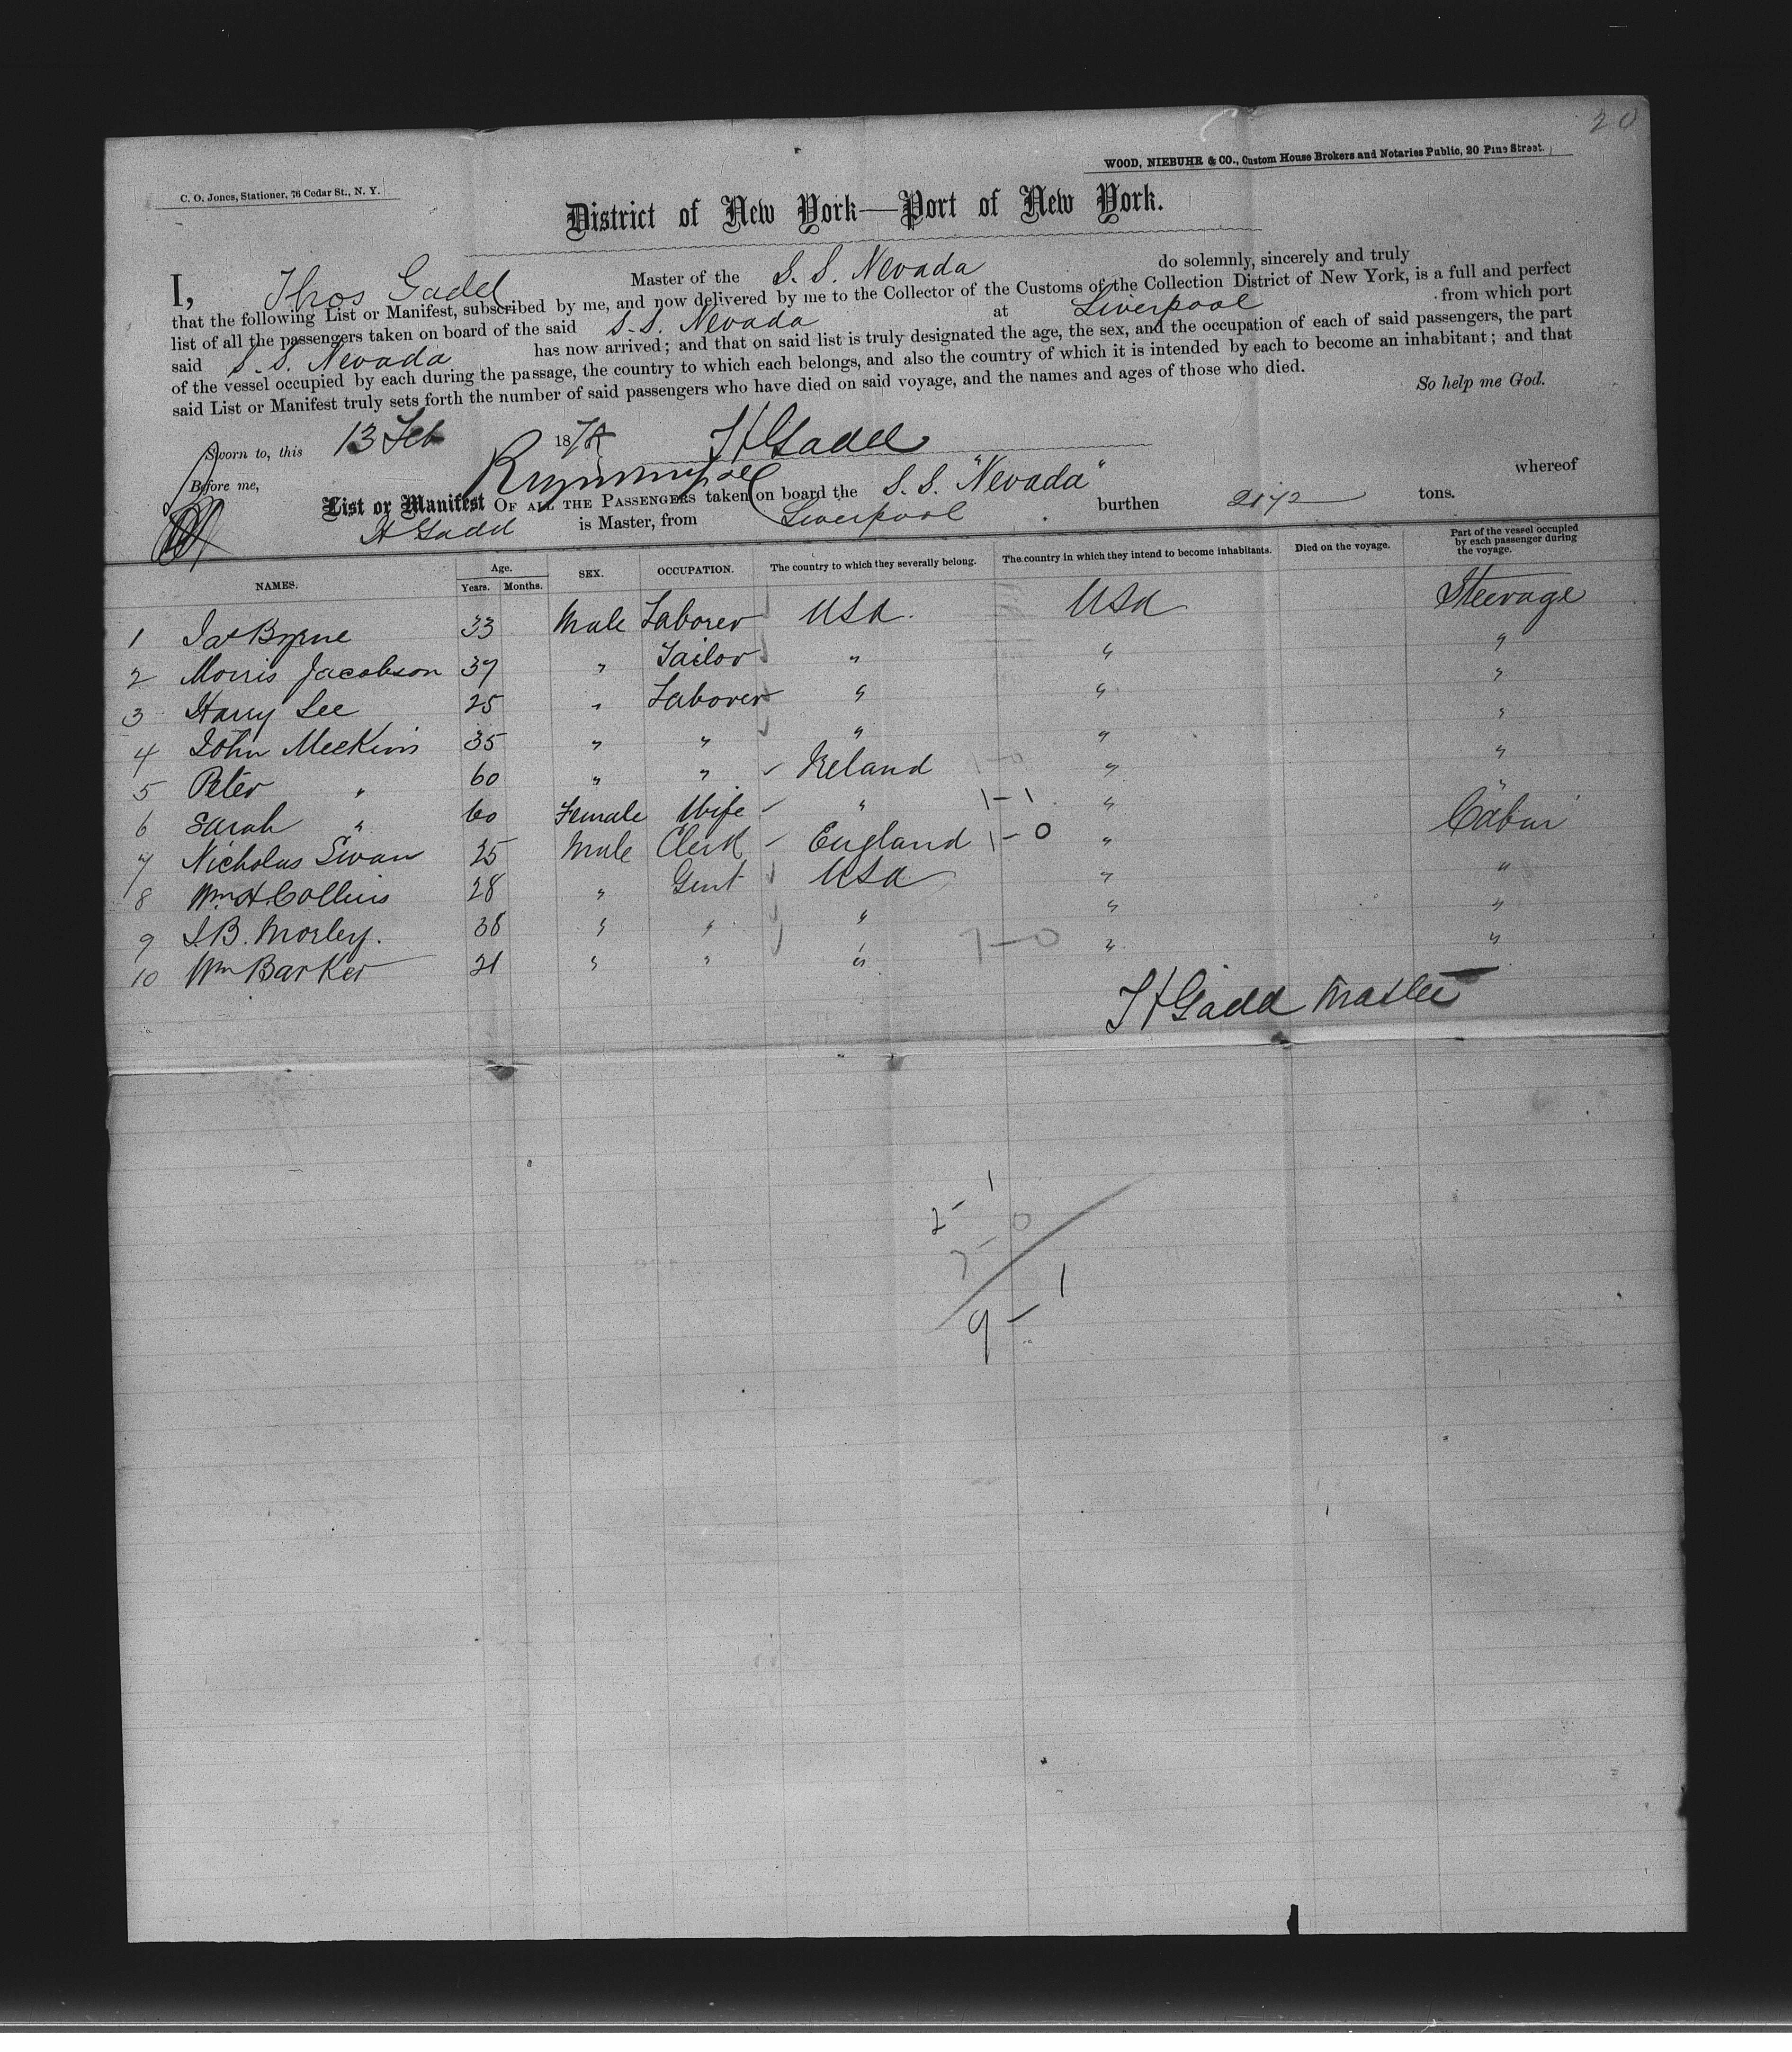 20
WOOD, NIEBUHR & CO., Custom House Brokers and Notaries Public, 20 Pine Street.
C. O. Jones, Stationer, 76 Cedar St., N. Y.
District of New York—Port of New York.
I, Thos Gadd Master of the S. S. Nevada do solemnly, sincerely and truly
that the following List or Manifest, subscribed by me, and now delivered by me to the Collector of the Customs of the Collection District of New York, is a full and perfect
list of all the passengers taken on board of the said S. S. Nevada at Liverpool from which port
said S. S. Nevada has now arrived; and that on said list is truly designated the age, the sex, and the occupation of each of said passengers, the part
of the vessel occupied by each during the passage, the country to which each belongs, and also the country of which it is intended by each to become an inhabitant; and that
said List or Manifest truly sets forth the number of said passengers who have died on said voyage, and the names and ages of those who died.
So help me God.
Sworn to, this 13 Feb 187 T H Gadd
Before me,
List or Manifest OF ALL THE PASSENGERS taken on board the S. S. "Nevada" whereof
H Gadd is Master, from Liverpool burthen tons.
NAMES. Age. Years. Months. SEX. OCCUPATION. The country to which they severally belong. The country in which they intend to become inhabitants. Died on the voyage. Part of the vessel occupied by each passenger during the voyage.
1 Jas Byrne 33 Male Laborer USA. USA Steerage
2 Morris Jacobson 37 " Tailor " " "
3 Harry Lee 25 " Laborer " " "
4 John Meekins 35 " " " " "
5 Peter " 60 " " Ireland 1-0 " "
6 Sarah " 60 Female Wife " 1-1 " "
7 Nicholas Swan 25 Male Clerk England 1-0 " Cabin
8 Wm H. Collins 28 " Gent USA " "
9 J.B. Morley. 38 " " " " "
10 Wm Barker 21 " " " 7-0 " "
T H Gadd Master
2-1
7-0
9-1